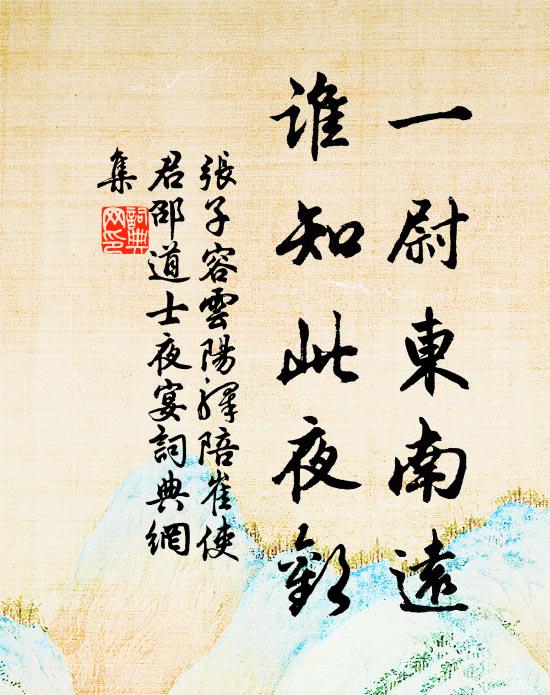 一尉東南遠
誰知此夜歡
張子容雲陽驛陪崔使
君邵道士夜宴詞典網
集
詞典
網印